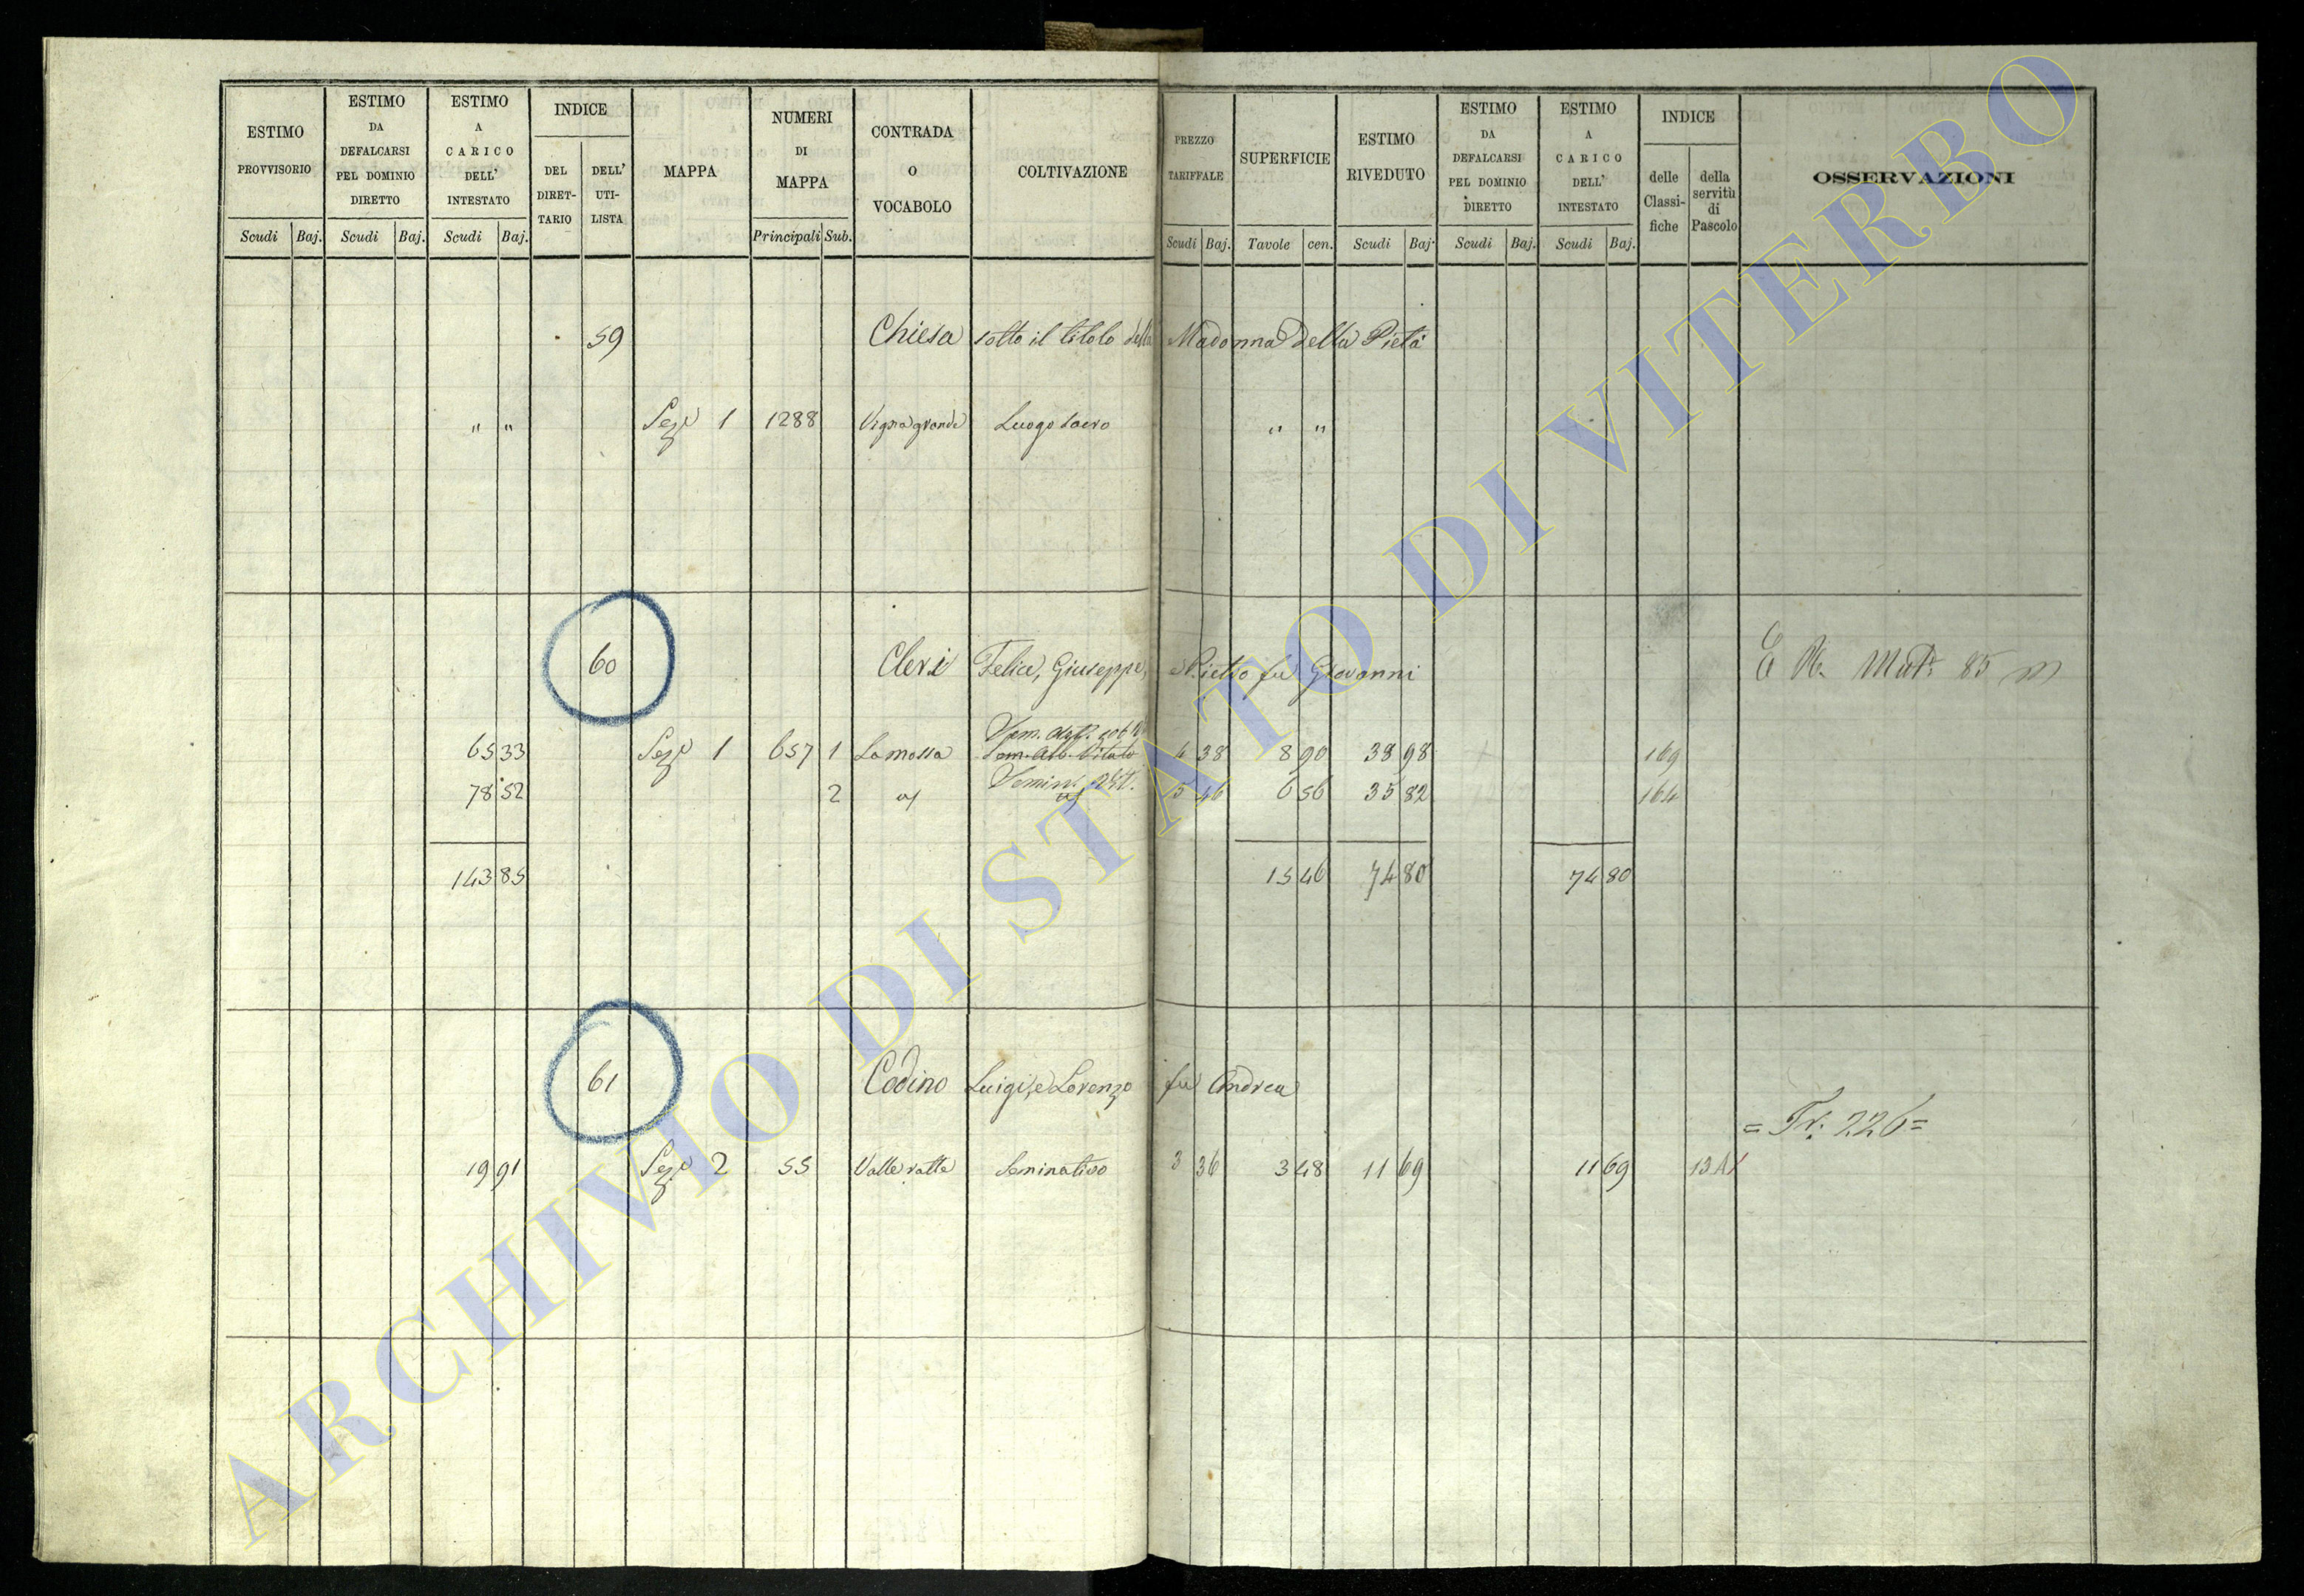 ESTIMO PROVVISORIO
Scudi Baj.
ESTIMO DA DEFALCARSI PEL DOMINIO DIRETTO
Scudi Baj.
ESTIMO A CARICO DELL' INTESTATO
Scudi Baj.
INDICE
DEL DIRET- TARIO
DELL' UTI- LISTA
MAPPA
NUMERI DI MAPPA
Principali Sub.
CONTRADA O VOCABOLO
COLTIVAZIONE
PREZZO TARIFFALE
Scudi Baj.
SUPERFICIE
Tavole cen.
ESTIMO RIVEDUTO
Scudi Baj.
ESTIMO DA DEFALCARSI PEL DOMINIO DIRETTO
Scudi Baj.
ESTIMO A CARICO DELL' INTESTATO
Scudi Baj.
INDICE
delle Classi- fiche
della servitù di Pascolo
OSSERVAZIONI
59 Chiesa sotto il titolo della Madonna della Pietà
" " Sezе 1 1288 Vigna grande Luogo sacro " "
60 Cleri Felice, Giuseppe, e Pietro fu Giovanni
65 33 Seze 1 657 1 La mossa Sem. Alb. Vitato 4 38 8 90 38 98 169
78 52 2 5 46 6 56 35 82 164
143 85 15 46 74 80 74 80
61 Codino Luigi, e Lorenzo fu Andrea
= Tr: 226 =
19 91 Seze 2 55 Valle ratte Seminativo 3 36 3 48 11 69 11 69
ARCHIVIO DI STATO DI VITERBO